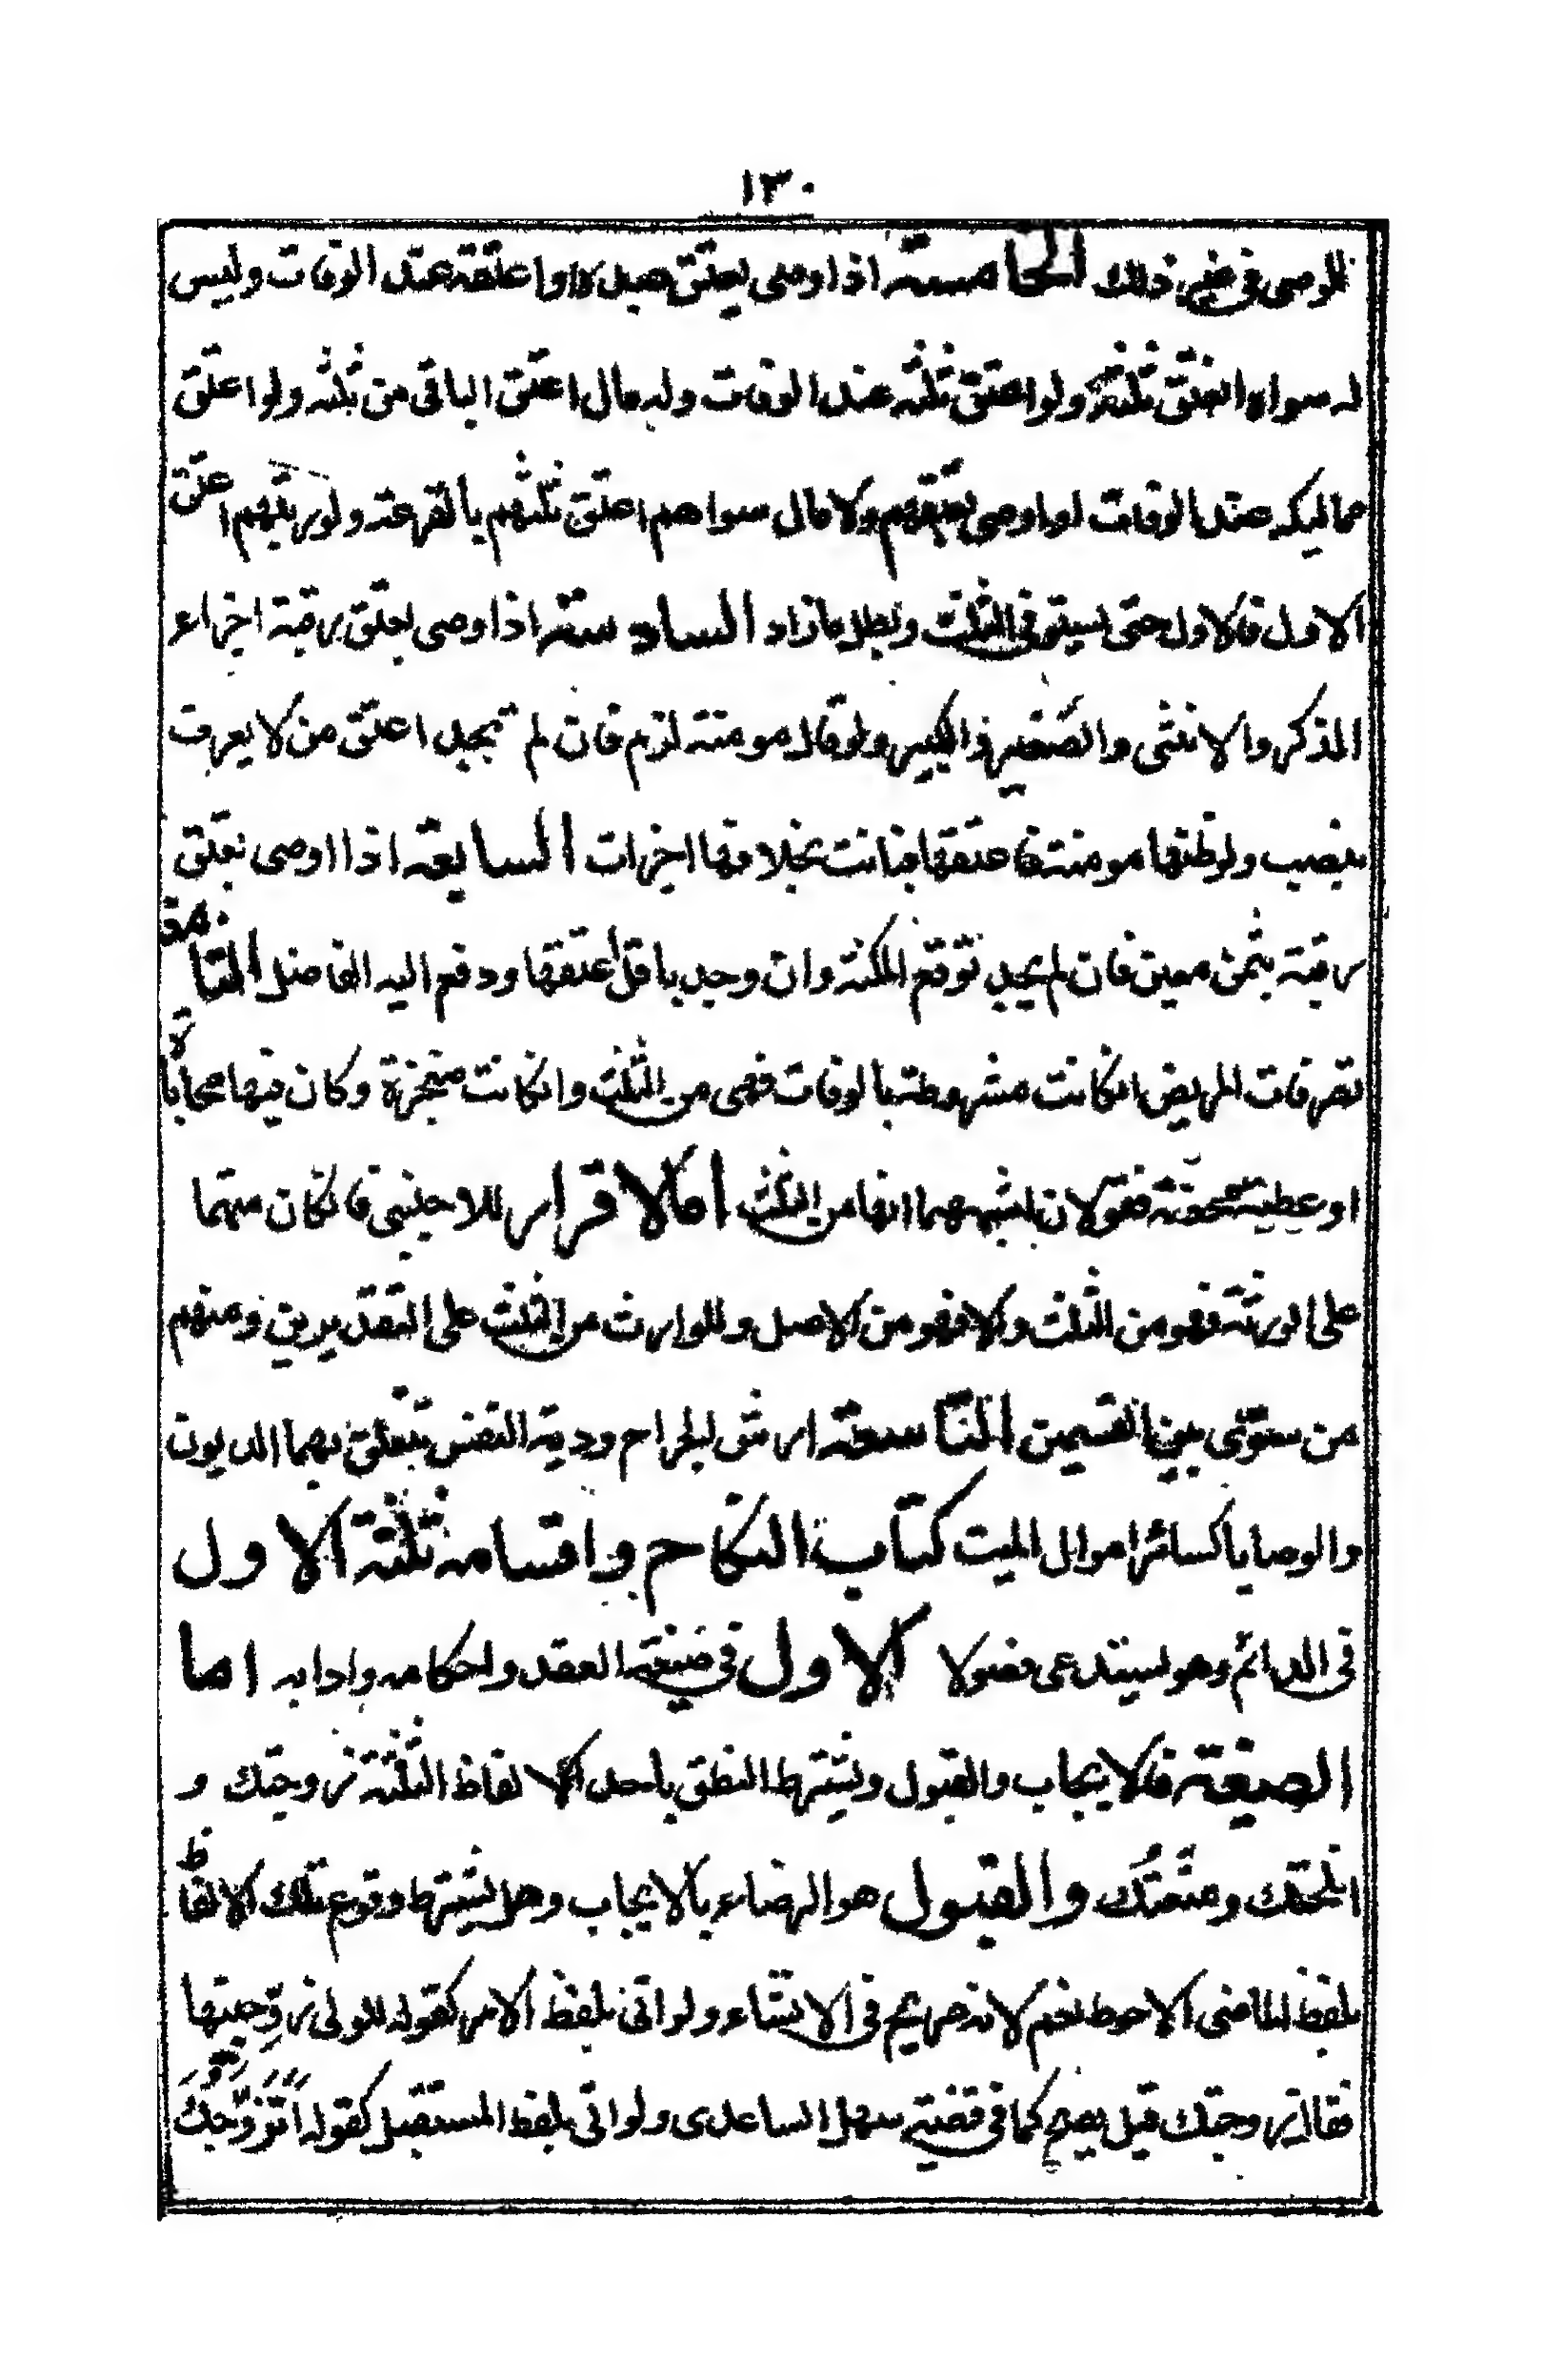 ١٣٠
للوصى فى غير ذلك الخامسة اذا اوصى بعتق عبده او اعتقه عند الوفات وليس
له سواه انعتق ثلثه ولو اعتق ثلثه عند الوفات وله مال اعتق الباقى من ثلثه ولو اعتق
مماليكه عند الوفات او اوصى بعتقهم ولا مال سواهم اعتق ثلثهم بالقرعة ولو رتبهم اعتق
الاول فالاول حتى يستوفى الثلث وبطل ما زاد السادسة اذا اوصى بعتق رقبة اجزاء
الذكر والانثى والصغير والكبير ولو قال مومنة لزم فان لم تجد اعتق من لا يعرف
بنصب ولو ظنها مومنة فاعتقها فبانت بخلافها اجزات السابعة اذا اوصى بعتق
رقبة بثمن معين فان لم يجد توقع المكنة وان وجد باقل اعتقها ودفع اليه الفاضل الثامنة
تصرفات المريض انكانت مشروطة بالوفات فهى من الثلث وانكانت منجزة وكان فيها محاباة
او عطية محضة فقولان اشبههما انها من الثلث اما الاقرار للاجنبى فانكان متهما
على الورثة فهو من الثلث والا فهو من الاصل وللوارث من الثلث على التقديرين ومنهم
من سوى بين القسمين التاسعة ارش الجراح ودية النفس يتعلق بهما الديون
والوصايا كسائر اموال الميت كتاب النكاح واقسامه ثلثة الاول
فى الدائم وهو يستدعى فصولا الاول فى صيغة العقد واحكامه وادابه اما
الصيغة فالايجاب والقبول ويشترط النطق باحد الالفاظ الثلثة زوجتك و
انكحتك ومتعتك والقبول هو الرضاء بالايجاب وهل يشترط وقوع تلك الالفاظ
بلفظ الماضى الاحوط نعم لانه صريح فى الانشاء ولو اتى بلفظ الامر كقوله للولى زوجنيها
فقال زوجتك قيل يصح كما فى قضية سهل الساعدى ولو اتى بلفظ المستقبل كقوله اتزوجك